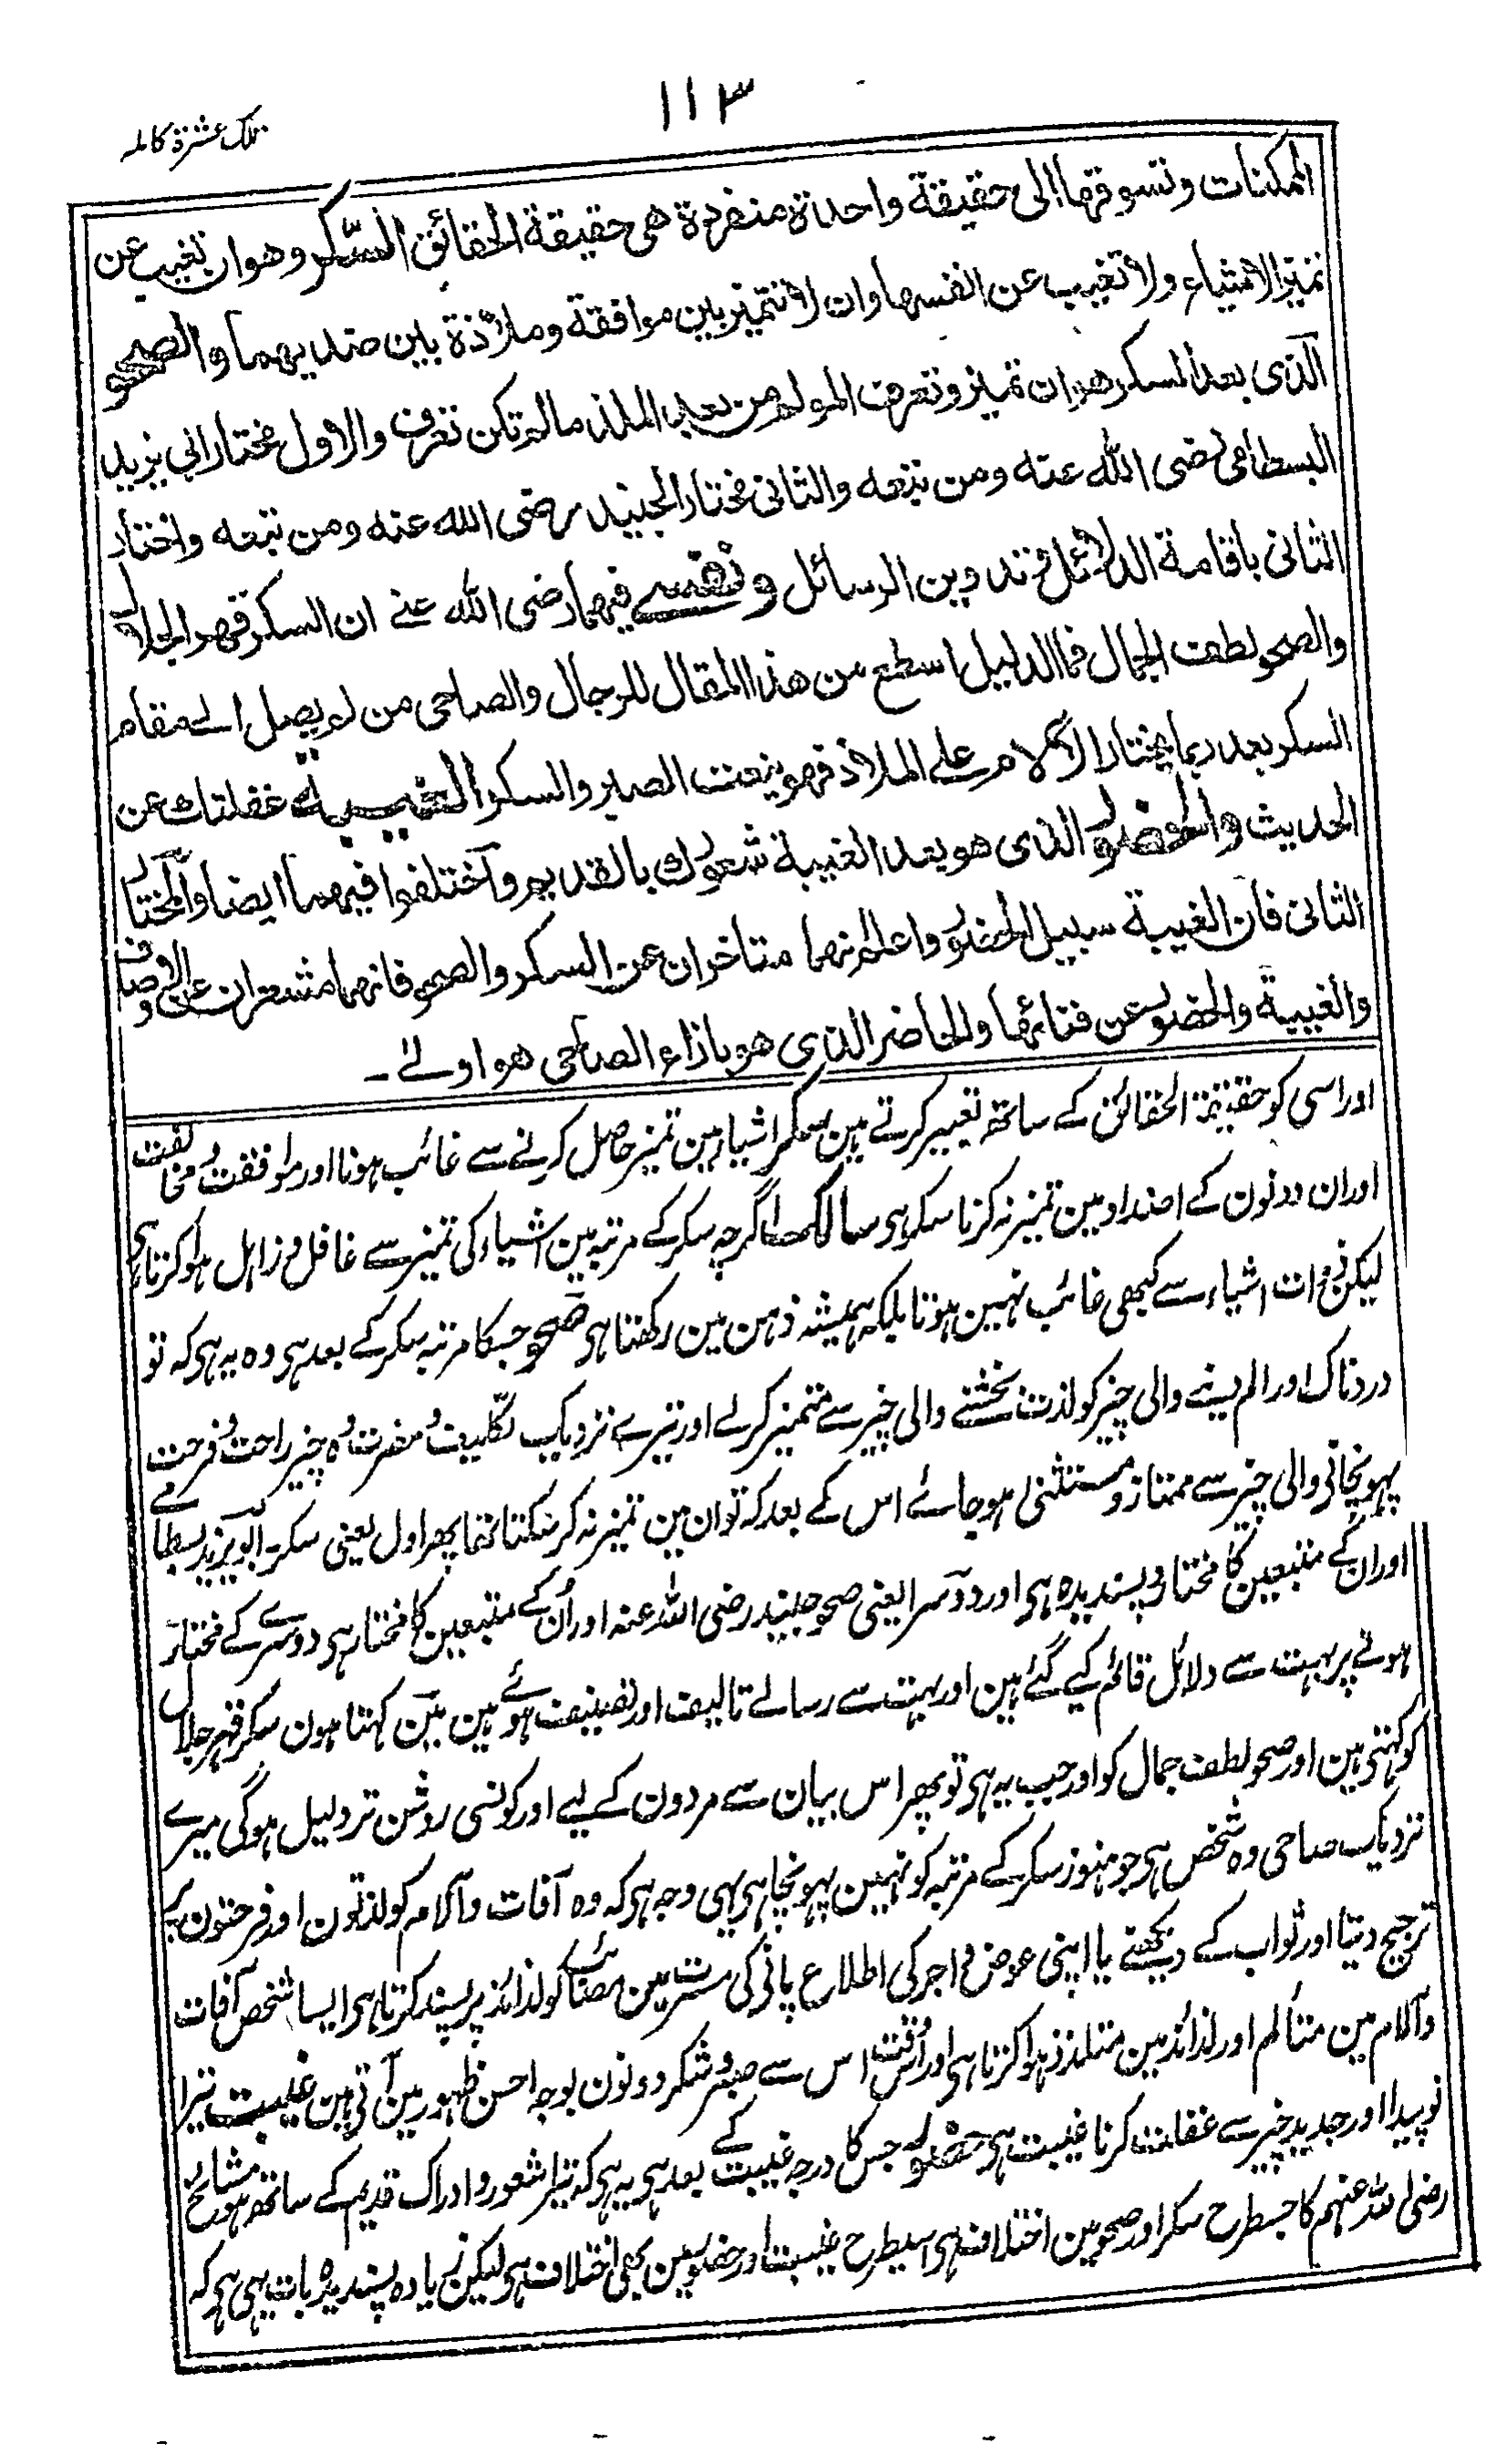 ١١٣
تلك عشرة كاملہ
الممكنات وتسوقها الى حقيقة واحدة منفردة هى حقيقة الحقائق السّكر وهو ان تغيب عن
تميز الاشياء ولا تغيب عن انفسها وان لا تتميز بين موافقة وملاذة بين ضديهما والصحو
الذى بعد السكر هو ان تميز وتعرف المولم من بعد الملذ مالم تكن تعرف والاول مختار ابي يزيد
البسطامى رضى الله عنه ومن تبعه والثانى مختار الجنيد رضى الله عنه ومن تبعه واختار
الثانى باقامة الدلائل وتدوين الرسائل ونفسے فيهما رضى الله عنے ان السكر قهر الجلال
والصحو لطف الجمال فما الدليل اسطع من هذا المقال للرجال والصاحى من لم يصل الے مقام
السكر بعد ربما يختار الآلام علے الملاذ فهو ينعت الصبر والسكر الغيبة غفلتك عن
الحديث والحضور الذى هو بعد الغيبة شعورك بالقديم واختلفوا فيهما ايضا والمختار
الثانى فان الغيبة سبيل الحضور واعلم انهما متاخران عن السكر والصحو فانهما مشعران عن الاوصاف
والغيبة والحضور عن فنائها والحاضر الذى هو باذاء الصاحى هو اولے ۔
اور اسی کو حقیقۃ الحقائق کے ساتھ تعبیر کرتے ہین سکر اشیاء مین تمیز حاصل کرنے سے غائب ہونا اور موافقت و مخالفت
اور ان دونون کے اضداد مین تمیز نہ کرنا سکر ہی سالک اگرچہ سکر کے مرتبہ مین اشیاء کی تمیز سے غافل و زاہل ہوا کرتا ہی
لیکن ذات اشیاء سے کبھی غائب نہین ہوتا بلکہ ہمیشہ ذہن مین رکھتا ہی صحو جسکا مرتبہ سکر کے بعد ہی وہ یہ ہی کہ تو
دردناک اور الم دینے والی چیز کو لذت بخشنے والی چیز سے متمیز کرلے اور تیرے نزدیک تکلیف و مضرت دہ چیز راحت و فرحت
پہونچانے والی چیز سے ممتاز و مستثنٰی ہو جائے اس کے بعد کہ تو ان مین تمیز نہ کر سکتا تھا پھر اول یعنی سکر ابو یزید بسطامے
اور ان کے متبعین کا مختار و پسندیدہ ہی اور دوسرا یعنی صحو جنید رضی اللہ عنہ اور اُن کے متبعین کا مختار ہی دوسرے کے مختار
ہونے پر بہت سے دلائل قائم کیے گئے ہین اور بہت سے رسالے تالیف اور تصنیف ہوئے ہین مین کہتا ہون سکر قہر جلال
کو کہتی ہین اور صحو لطف جمال کو اور جب یہ ہی تو پھر اس بیان سے مردون کے لیے اور کونسی روشن تر دلیل ہوگی میرے
نزدیک صاحی وہ شخص ہی جو ہنوز سکر کے مرتبہ کو نہین پہونچا ہی یہی وجہ ہی کہ وہ آفات و آلام کو لذتون اور فرحتون پر
ترجیح دیتا اور ثواب کے دیکھنے یا اپنی عوض و اجر کی اطلاع پانے کی مسرت مین مصائب کو لذائذ پر پسند کرتا ہی ایسا شخص آفات
و آلام مین متألم اور لذائذ مین متلذذ ہوا کرتا ہی اور اُسوقت اس سے صبر و شکر دونون بوجہ احسن ظہور مین آتی ہین غیبت تیرا
نو پیدا اور جدید چیز سے غفلت کرنا غیبت ہی حضور جس کا درجہ غیبت کے بعد ہی یہ ہی کہ تیرا شعور و ادراک قدیم کے ساتھ ہو مشائخ
رضی اللہ عنہم کا جسطرح سکر اور صحو مین اختلاف ہی اسیطرح غیبت اور حضور مین بھی اختلاف ہی لیکن زیادہ پسندیدہ بات یہی ہی کہ